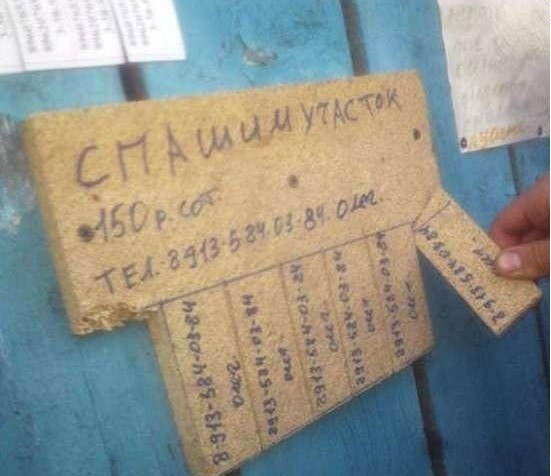 СПАШИМ УЧАСТОК
150 р. сот.
ТЕЛ. 8913-584.03-84. Олег.
8.913-584-03-84
Олег
8913-584-03-84
Олег
8913-584-03-84
Олег
8913-584-03-84
Олег
8913-584-03-84
Олег
8913-584-03-84
Олег.